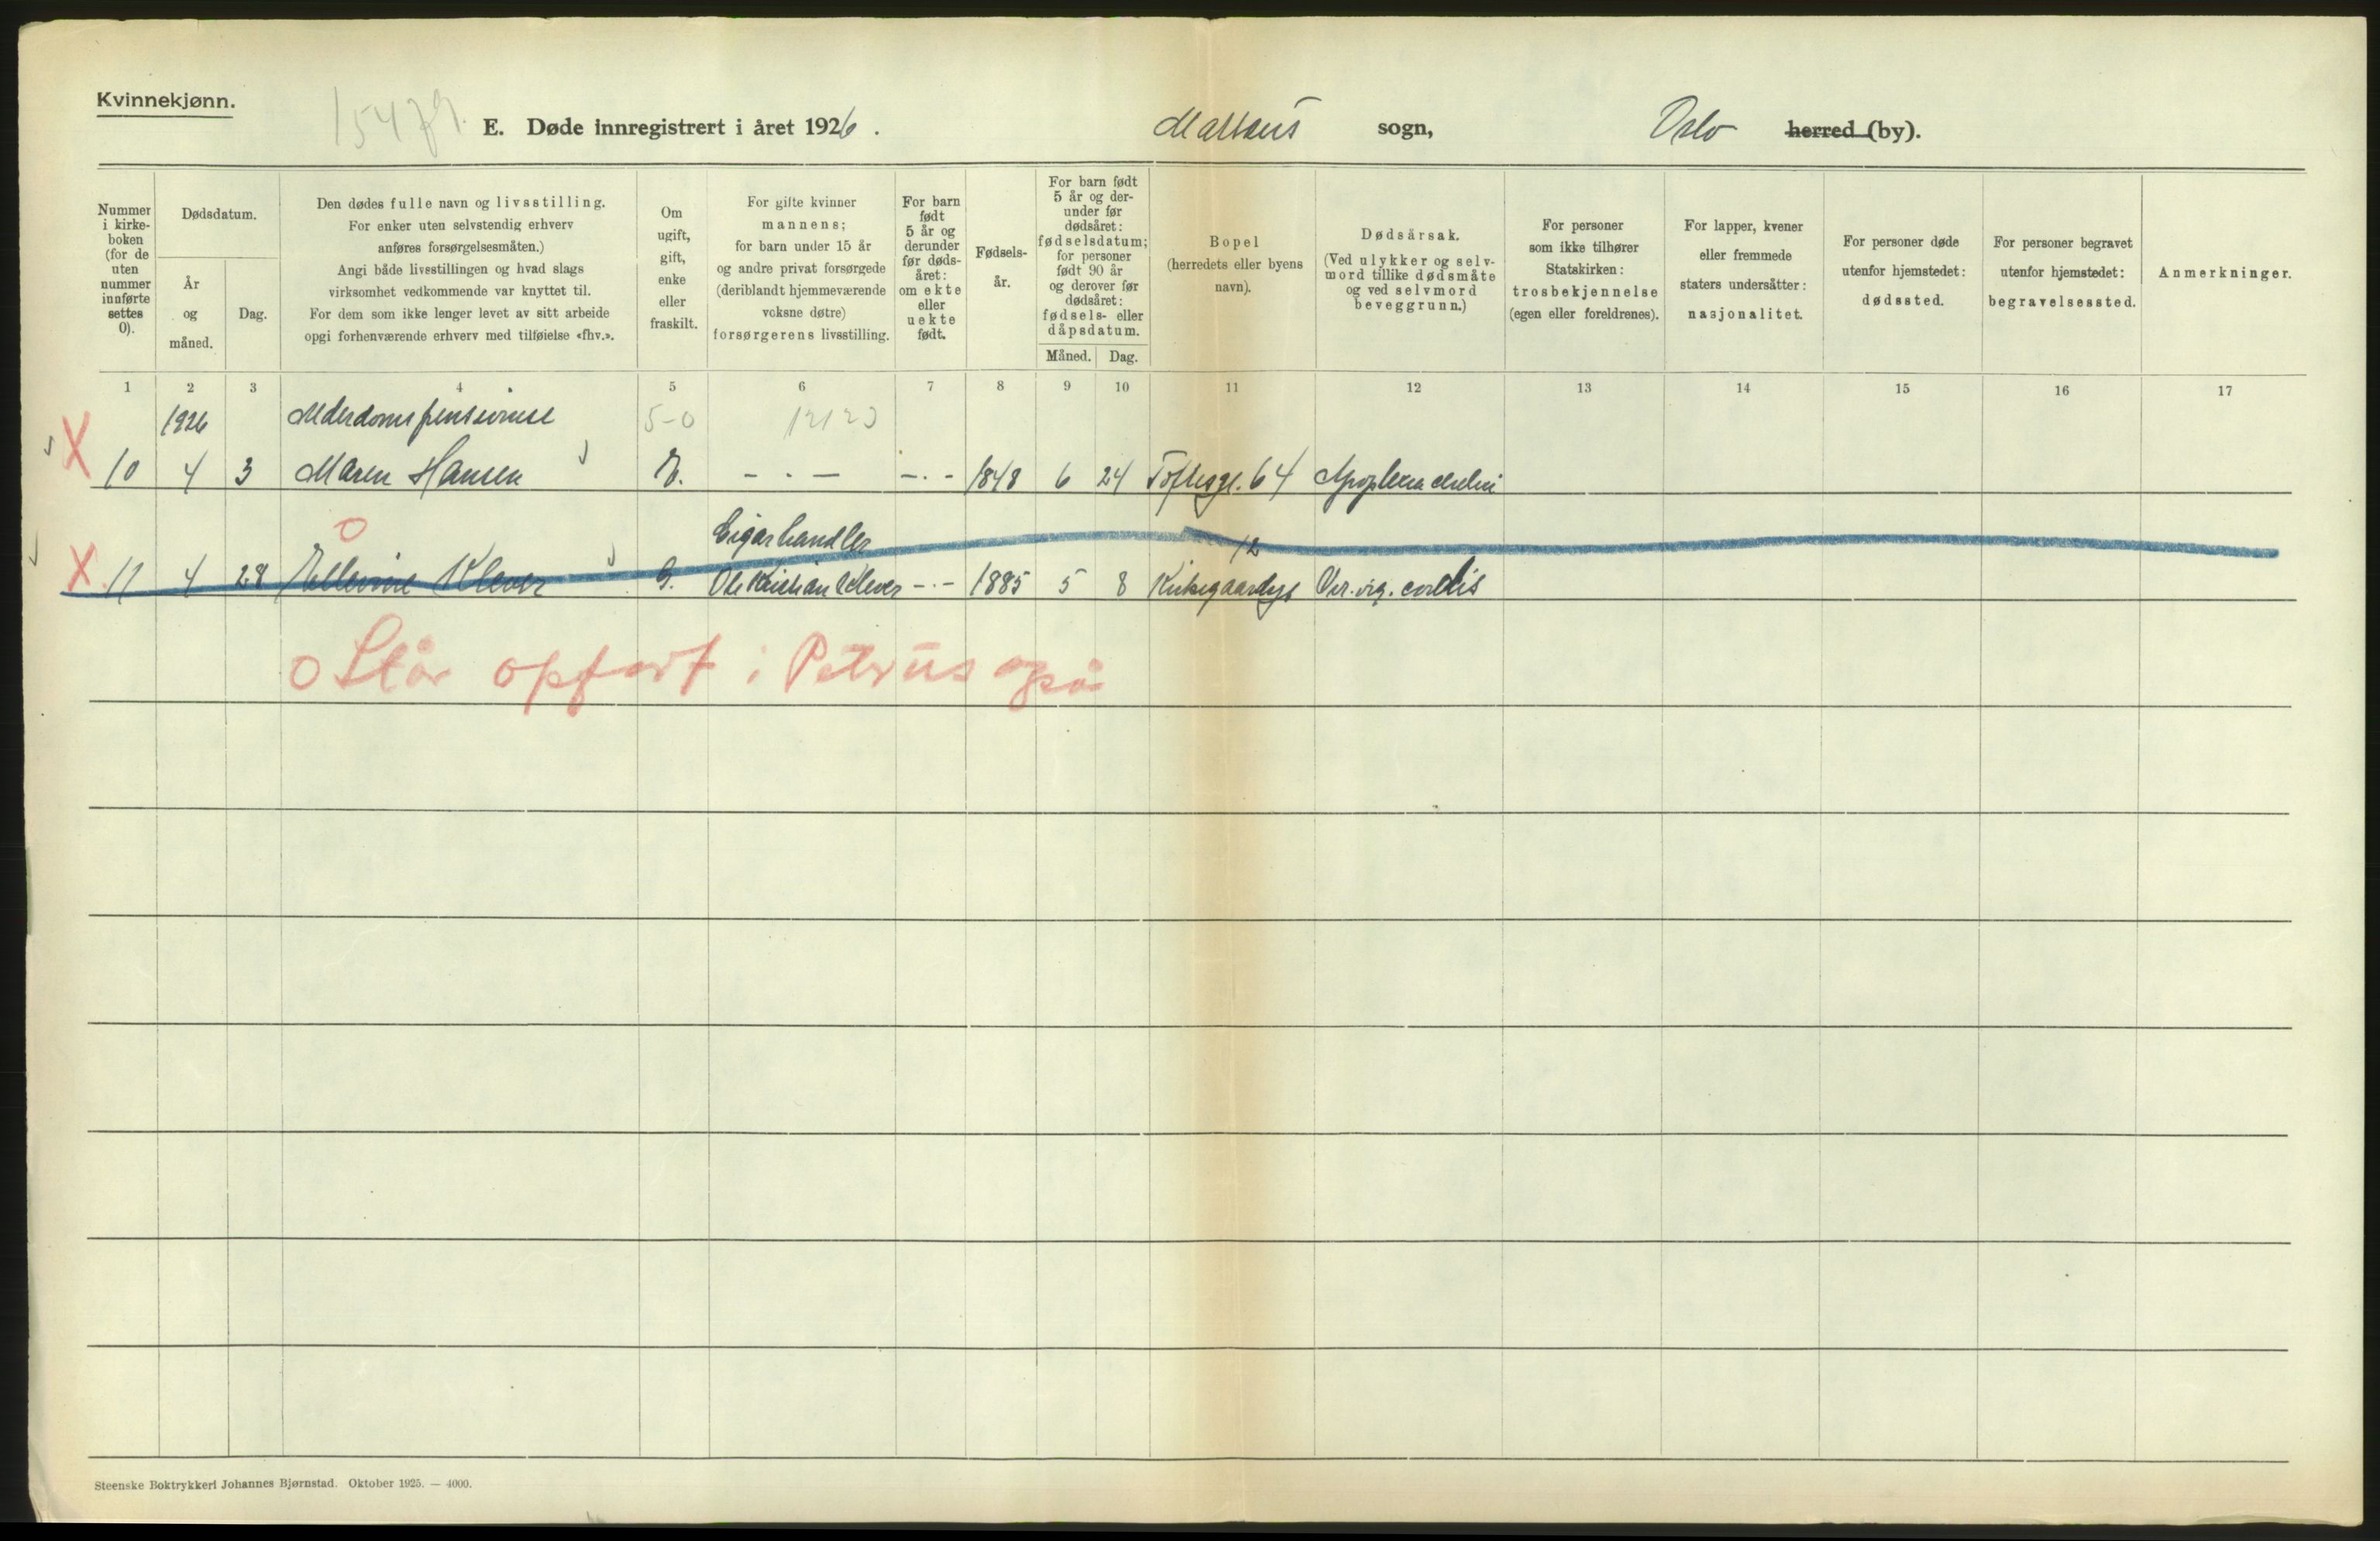 Kvinnekjønn.
E. Døde innregistrert i året 1926. Mattæus sogn, Oslo herred (by).
Nummer i kirke-boken (for de uten nummer innførte settes 0).
Dødsdatum.
År og måned.
Dag.
Den dødes fulle navn og livsstilling.
For enker uten selvstendig erhverv
anføres forsørgelsesmåten.)
Angi både livsstillingen og hvad slags
virksomhet vedkommende var knyttet til.
For dem som ikke lenger levet av sitt arbeide
opgi forhenværende erhverv med tilføielse «fhv.».
Om
ugift,
gift,
enke
eller
fraskilt.
For gifte kvinner
mannens;
for barn under 15 år
og andre privat forsørgede
(deriblandt hjemmeværende
voksne døtre)
forsørgerens livsstilling.
For barn
født
5 år og
derunder
før døds-
året:
om ekte
eller
uekte
født.
Fødsels-
år.
For barn født
5 år og der-
under før
dødsåret:
fødselsdatum;
for personer
født 90 år
og derover før
dødsåret:
fødsels- eller
dåpsdatum.
Måned. Dag.
Bopel
(herredets eller byens
navn).
Dødsårsak.
(Ved ulykker og selv-
mord tillike dødsmåte
og ved selvmord
beveggrunn.)
For personer
som ikke tilhører
Statskirken:
trosbekjennelse
(egen eller foreldrenes).
For lapper, kvener
eller fremmede
staters undersåtter:
nasjonalitet.
For personer døde
utenfor hjemstedet:
dødssted.
For personer begravet
utenfor hjemstedet:
begravelsessted.
Anmerkninger.
1 2 3 4 5 6 7 8 9 10 11 12 13 14 15 16 17
1926 Alderdomspensionise 5-0
X 10 4 3 Maren Hansen E. - . - - . - 1848 6 24 Toftesgt. 64 Apoplexia
0 Cigarhandler 12
X 11 4 28 Ellevine Klever G. Ole Kristian Klever - . - 1885 5 8 Kirkegaardsgt Vit. org. cordis
0 Står opført i Petrus også
Steenske Boktrykkeri Johannes Bjørnstad. Oktober 1925. — 4000.